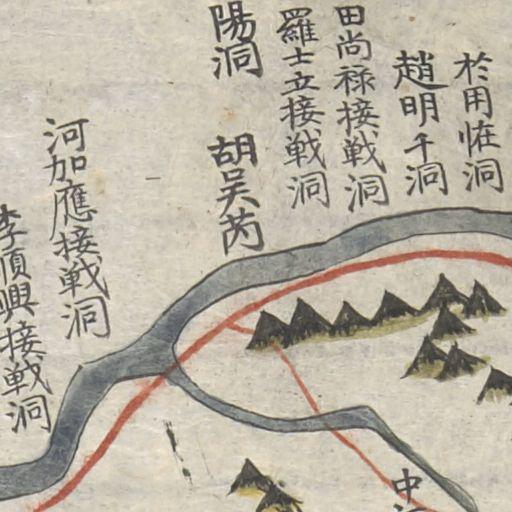 於用恠洞
趙明千洞
田尚祿接戰洞
羅士立接戰洞
陽洞
胡吳芮
河加應接戰洞
李順興接戰洞
中